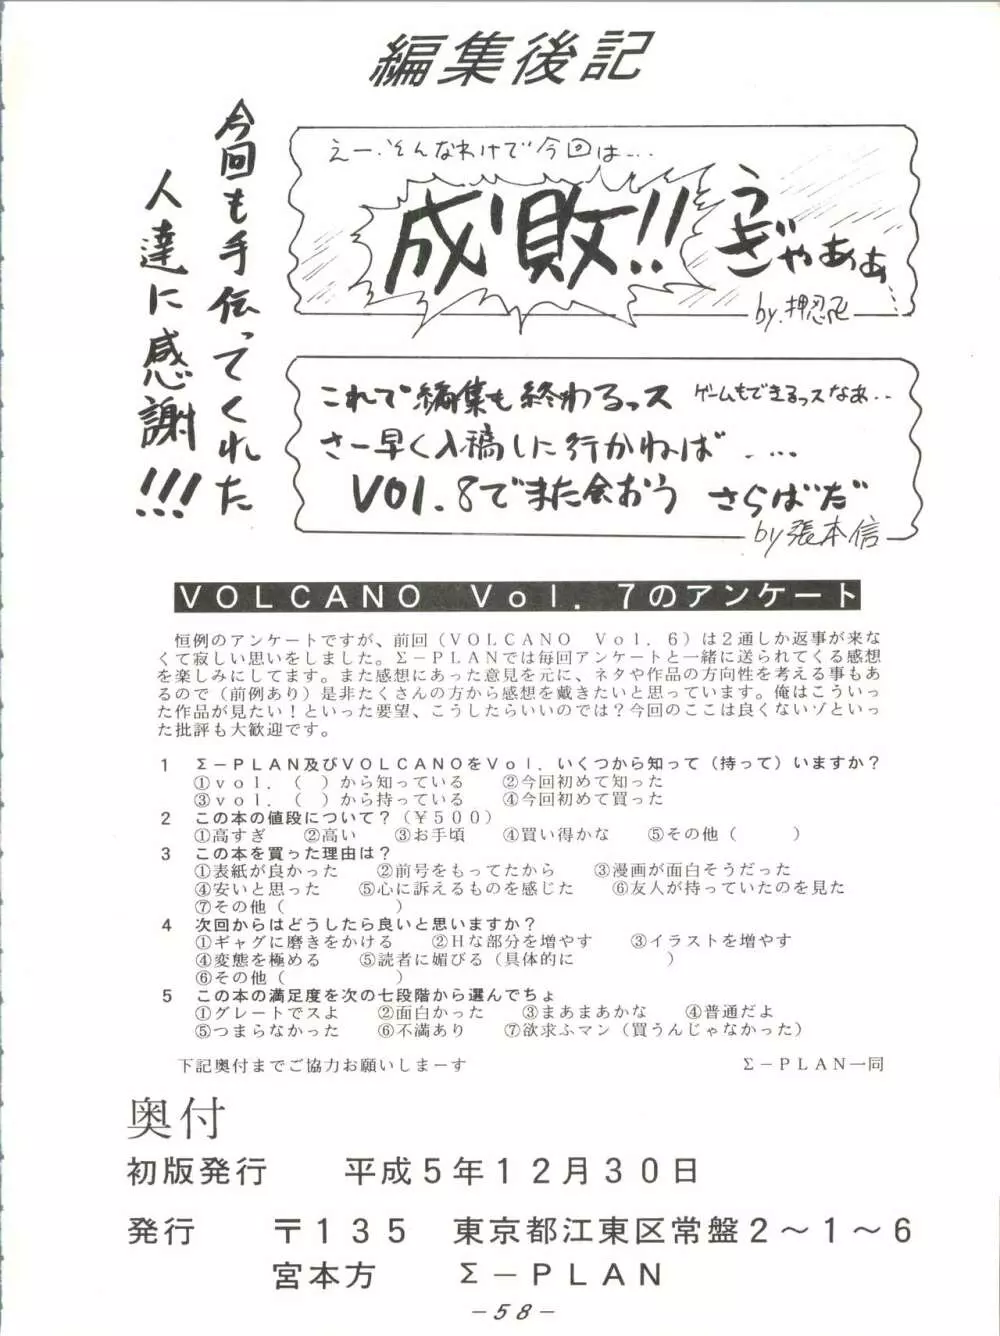 編集後記
今回も手伝ってくれた
人達に感謝!!!
えー、そんなわけで今回は…
成敗!!
うぎゃあぁ…
by.押忍
これで編集も終わるっス ゲームもできるっスなあ‥
さー早く入稿しに行かねば ‥‥
VOl.8でまた会おう さらばだ
by 張本信
ＶＯＬＣＡＮＯ Ｖｏｌ．７のアンケート
恒例のアンケートですが、前回（ＶＯＬＣＡＮＯ Ｖｏｌ．６）は２通しか返事が来な
くて寂しい思いをしました。Σ－ＰＬＡＮでは毎回アンケートと一緒に送られてくる感想
を楽しみにしてます。また感想にあった意見を元に、ネタや作品の方向性を考える事もあ
るので（前例あり）是非たくさんの方から感想を戴きたいと思っています。俺はこういっ
た作品が見たい！といった要望、こうしたらいいのでは？今回のここは良くないゾといっ
た批評も大歓迎です。
１ Σ－ＰＬＡＮ及びＶＯＬＣＡＮＯをＶｏｌ．いくつから知って（持って）いますか？
①ｖｏｌ．（ ）から知っている ②今回初めて知った
③ｖｏｌ．（ ）から持っている ④今回初めて買った
２ この本の値段について？（￥５００）
①高すぎ ②高い ③お手頃 ④買い得かな ⑤その他（ ）
３ この本を買った理由は？
①表紙が良かった ②前号をもってたから ③漫画が面白そうだった
④安いと思った ⑤心に訴えるものを感じた ⑥友人が持っていたのを見た
⑦その他（ ）
４ 次回からはどうしたら良いと思いますか？
①ギャグに磨きをかける ②Ｈな部分を増やす ③イラストを増やす
④変態を極める ⑤読者に媚びる（具体的に ）
⑥その他（ ）
５ この本の満足度を次の七段階から選んでちょ
①グレートでスよ ②面白かった ③まあまあかな ④普通だよ
⑤つまらなかった ⑥不満あり ⑦欲求ふマン（買うんじゃなかった）
下記奥付までご協力お願いしまーす Σ－ＰＬＡＮ一同
奥付
初版発行 平成５年１２月３０日
発行 〒１３５ 東京都江東区常盤２～１～６
宮本方 Σ－ＰＬＡＮ
－58－